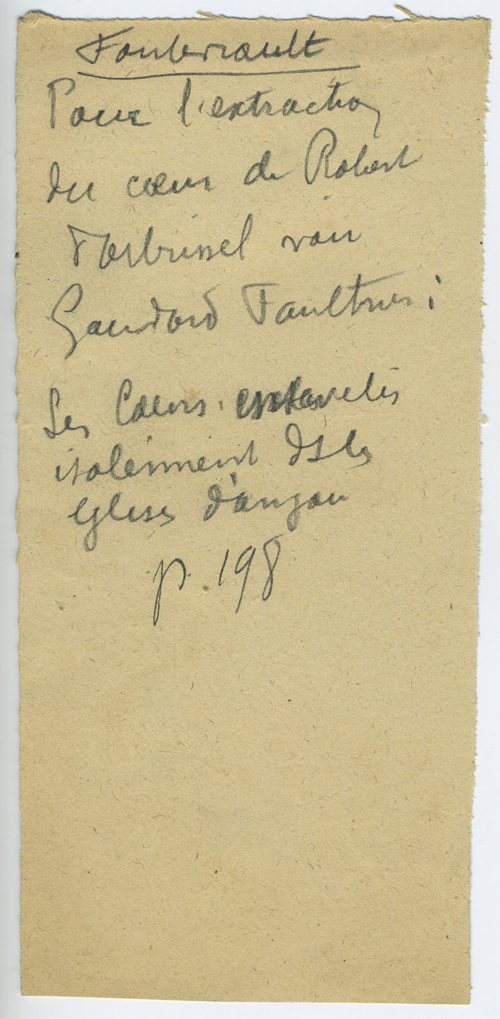 Fontevrault
Pour l'extraction
du cœur de Robert
d'Arbrissel voir
Gaudard Faultrier :
Les Cœurs ensevelis
isolément ds les
églises d'anjou
p. 198